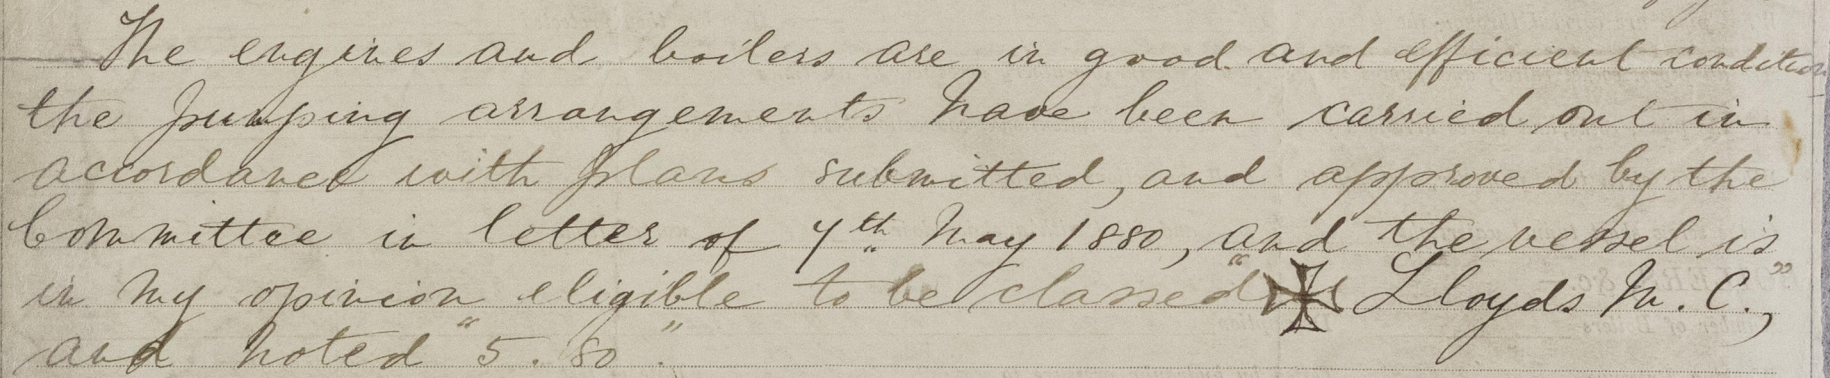 The engines and boilers are in good and efficient condition
the pumping arrangements have been carried out in
accordance with plans submitted, and approved by the
Committee in letter of 7th May 1880, and the vessel is
in my opinion eligible to be classed "✠ Lloyds M. C.,"
and noted "5. 80".